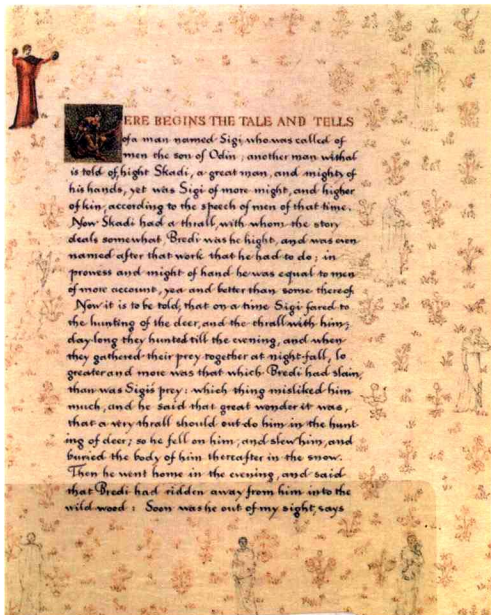 HERE BEGINS THE TALE AND TELLS
of a man named Sigi who was called of
men the son of Odin; another man withal
is told of, hight Skadi, a great man, and mighty of
his hands, yet was Sigi of more might, and higher
of kin, according to the speech of men of that time.
Now Skadi had a thrall, with whom the story
deals somewhat, Bredi was he hight, and was even
named after that work that he had to do; in
prowess and might of hand he was equal to men
of more account, yea and better than some thereof.
Now it is to be told, that on a time Sigi fared to
the hunting of the deer, and the thrall with him;
day-long they hunted till the evening, and when
they gathered their prey together at night-fall, lo
greater and more was that which Bredi had slain,
than was Sigis prey: which thing misliked him
much, and he said that great wonder it was,
that a very thrall should out-do him in the hunt-
ing of deer; so he fell on him, and slew him, and
buried the body of him thereafter in the snow.
Then he went home in the evening, and said
that Bredi had ridden away from him into the
wild wood: Soon was he out of my sight, says